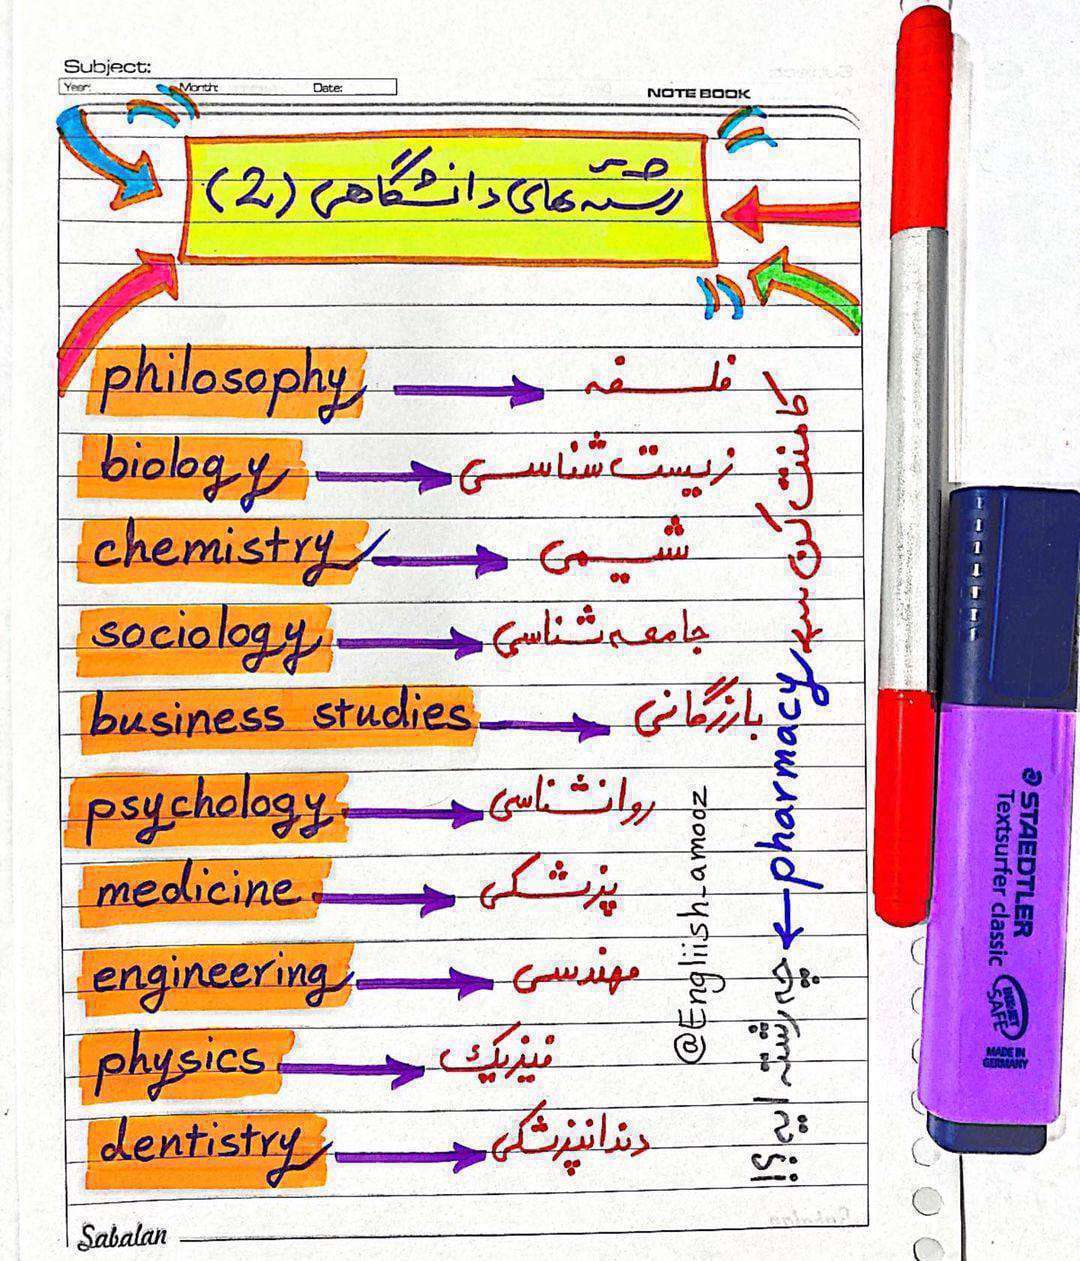 Subject:
Year: Month: Date:
NOTE BOOK
رشته های دانشگاهی (2)
philosophy → فلسفه
biology → زیست شناسی
chemistry → شیمی
sociology → جامعه شناسی
business studies → بازرگانی
psychology → روانشناسی
medicine → پزشکی
engineering → مهندسی
physics → فیزیک
dentistry → دندانپزشکی
کامنت کن
pharmacy ← چه رشته ایه؟!
@Engliish_amooz
STAEDTLER
Textsurfer classic
INKJET SAFE
MADE IN GERMANY
Sabalan